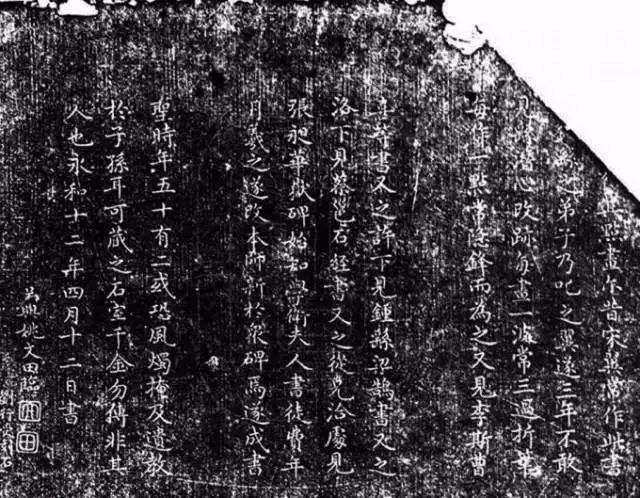 點畫尓昔宋翼常作此書
之弟子乃叱之翼遂三年不敢
見潛心改跡每畫一波常三過折筆
每作一點常隱鋒而為之又見李斯曹
喜等書又之許下見鍾繇梁鵠書又之
洛下見蔡邕石經書又之從兄洽處見
張昶華嶽碑始知學衛夫人書徒費年
月羲之遂改本師新於眾碑焉遂成書
聖時年五十有二或恐風燭掩及遺教
於子孫耳可藏之石室千金勿傳非其
人也永和十二年四月十二日書
吳興姚文田臨